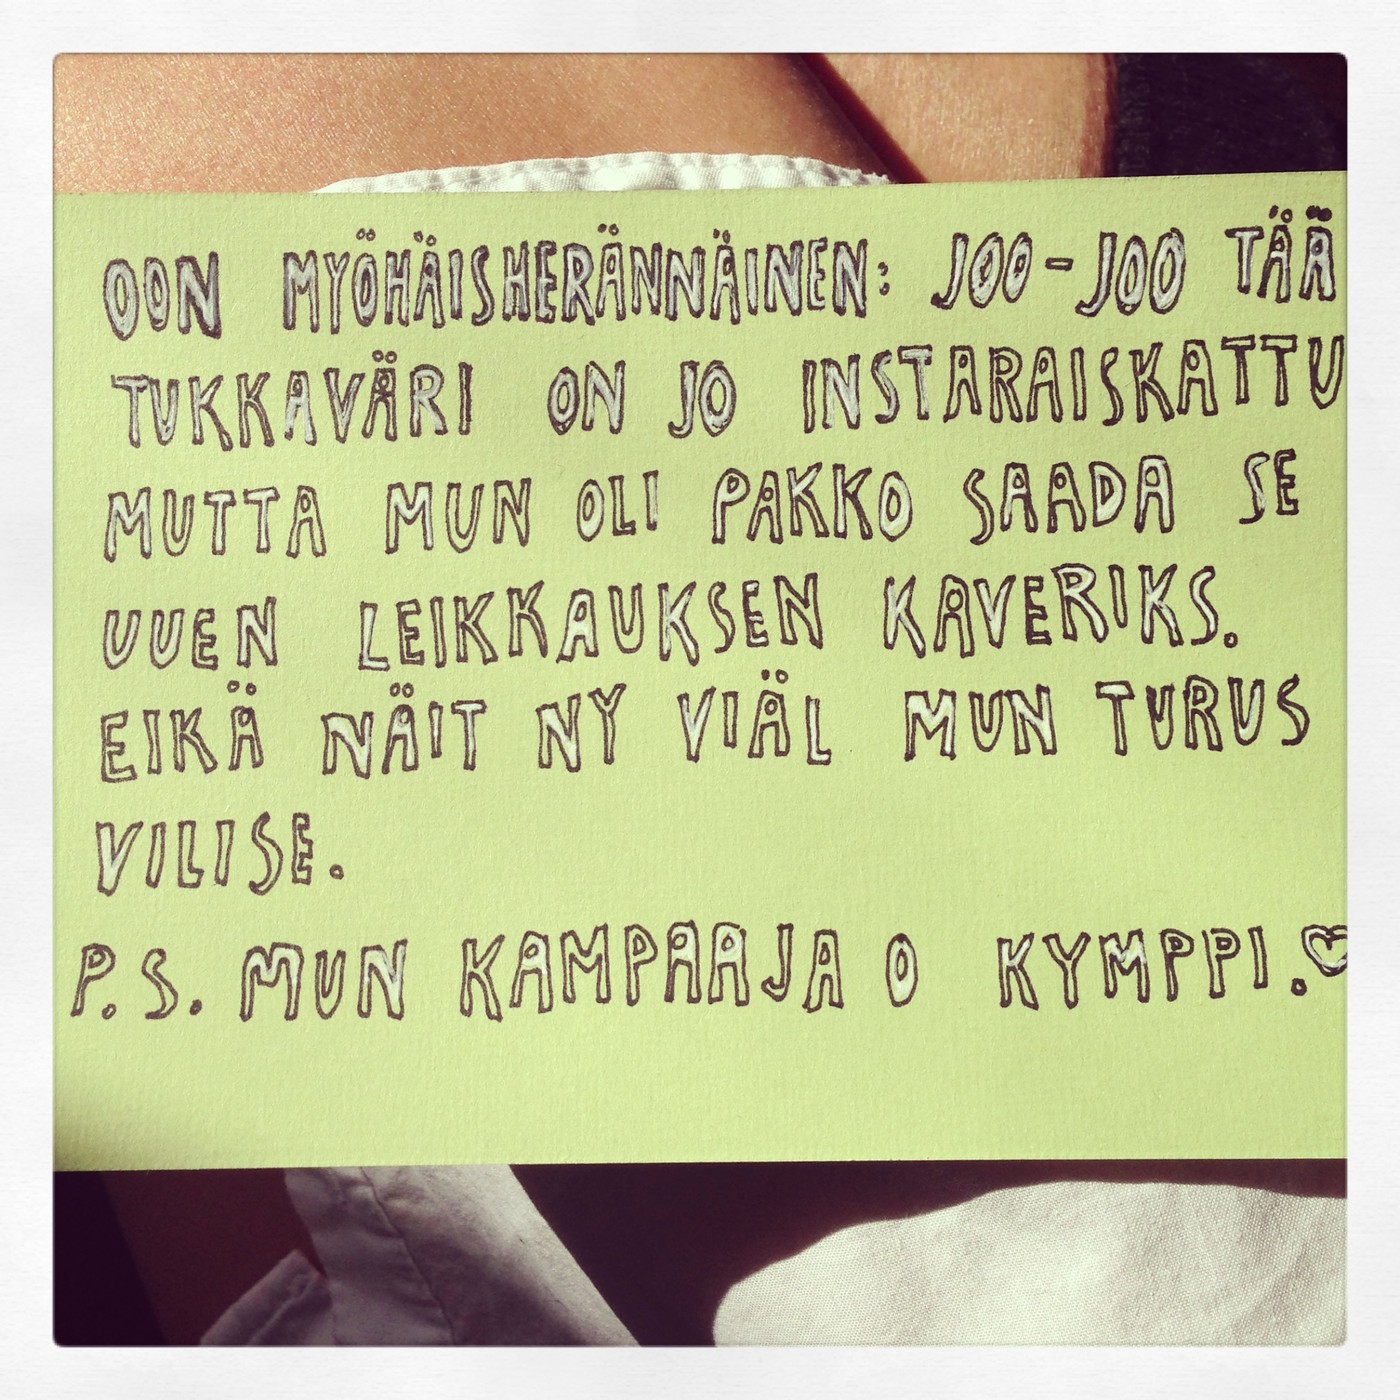 OON MYÖHÄISHERÄNNÄINEN: JOO-JOO TÄÄ
TUKKAVÄRI ON JO INSTARAISKATTU
MUTTA MUN OLI PAKKO SAADA SE
UUEN LEIKKAUKSEN KAVERIKS.
EIKÄ NÄIT NY VIÄL MUN TURUS
VILISE.
P.S. MUN KAMPAAJA O KYMPPI.♡